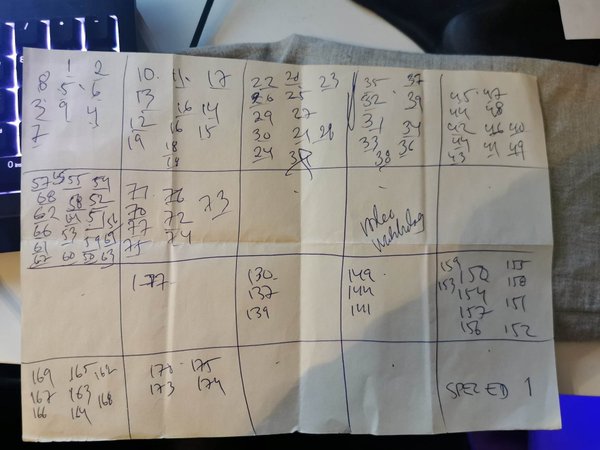 1 2
8 5 6
3 9 4
7
10 11 17
13
16 14
12 16 15
19 18
22 20 23
26 25
29 27
30 21 28
24
35 37
32 39
31 34
33 36
38
45 47
44 48
42 46 40
41 49
43
57 55 54
68 58 52
62 51
66 53 59
61
67 60 50 63
71 76
70 72 73
77 74
75
177
130
137
139
149
144
141
159 150 155
153 154 158
157 151
156 152
169 165 162
167 163 168
166 164
170 175
173 174
SPEC ED 1